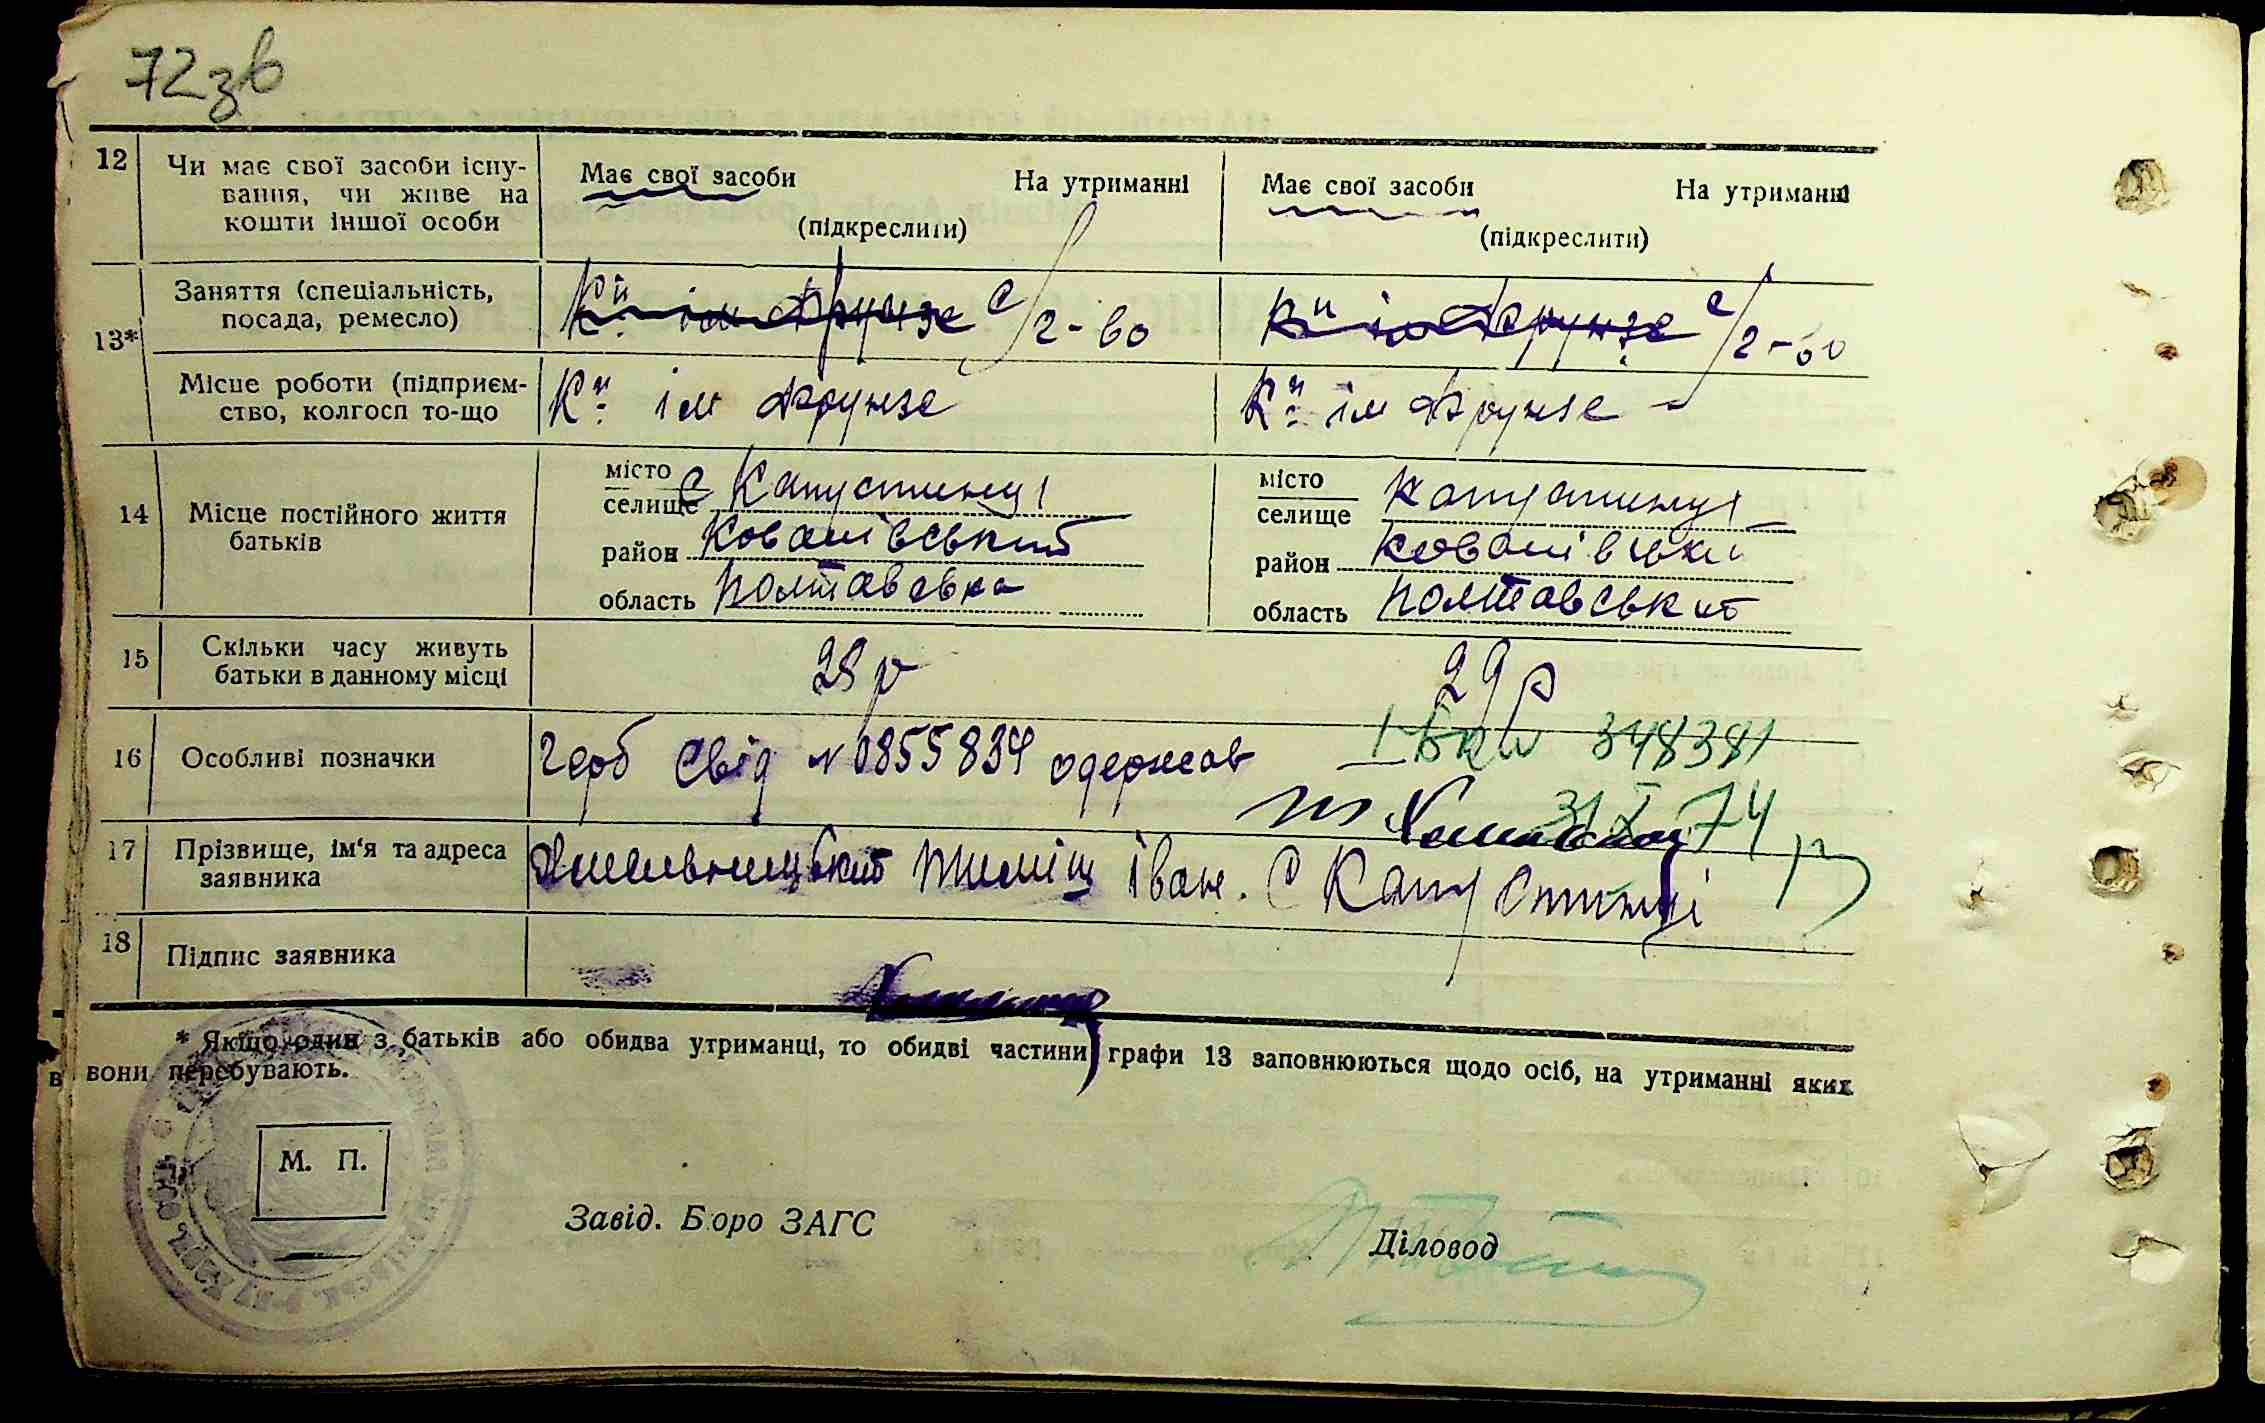 72зв
12 Чи має свої засоби існу- Має свої засоби На утриманні Має свої засоби На утриманні
вання, чи живе на
кошти іншої особи (підкреслити) (підкреслити)
13* Заняття (спеціальність, Кп ім Фрунзе с/г-во Кп ім Фрунзе с/г-во
посада, ремесло)
Місце роботи (підприєм- Кп ім Фрунзе Кп ім Фрунзе
ство, колгосп то-що
14 Місце постійного життя батьків
місто с Капустинці місто Капустинці
селище селище
район Ковалівський район Ковалівськи
область Полтавська область Полтавський
15 Скільки часу живуть 28 р 29 р
батьки в данному місці
16 Особливі позначки Герб свід № 0855834 одержав 348381
31 I 74 р
17 Прізвище, ім'я та адреса Хмельницький Тиміш Іван. с Капустинці
заявника
18 Підпис заявника
* Якщо один з батьків або обидва утриманці, то обидві частини графи 13 заповнюються щодо осіб, на утриманні яких
в вони перебувають.
М. П.
Завід. Бюро ЗАГС Діловод